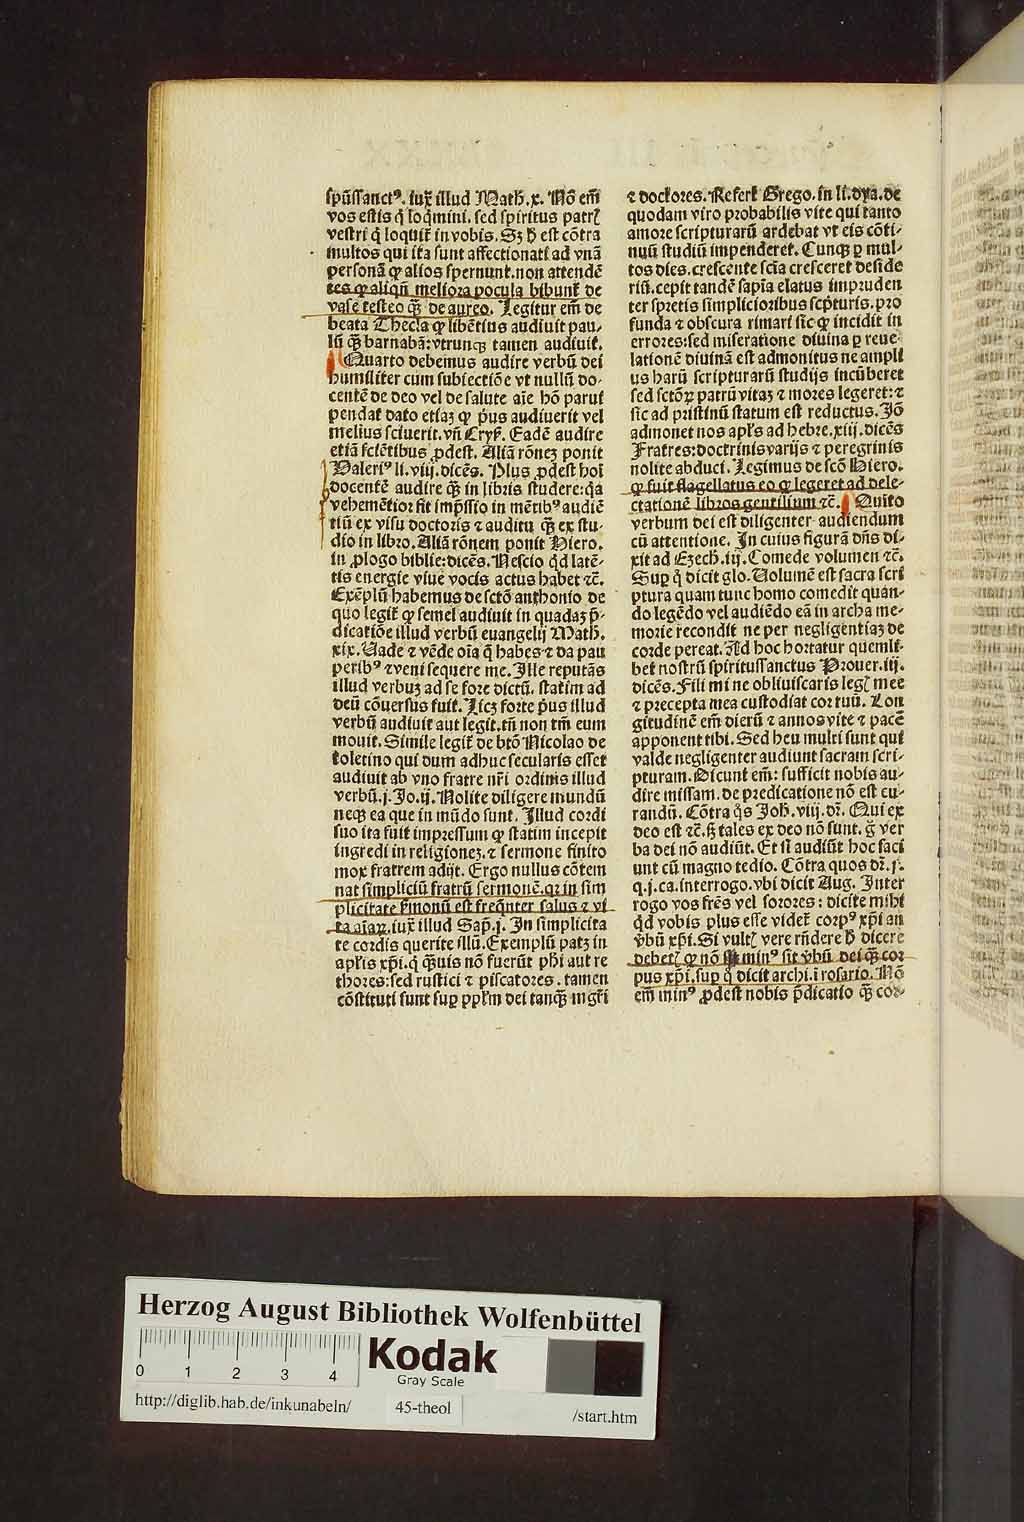 spūssanctꝰ. iuꝝ illud Math. x. Nō em̄
vos estis q̇ loq̄mini. sed spiritus patrꝭ
vestri q̇ loquit̄ in vobis. Sꝫ h̄ est cōtra
multos qui ita sunt affectionati ad vnā
personā ꝙ alios spernunt. non attendē
tes ꝙ aliqn̄ meliora pocula bibunt̄ de
vase testeo qꝫ̄ de aureo. Legitur em̄ de
beata Thecla ꝙ libētius audiuit pau-
lū qꝫ̄ barnabā: vtrunqꝫ tamen audiuit.
Quarto debemus audire verbū dei
humiliter cum subiectiōe vt nullū do-
centē de deo vel de salute aīe hō parui
pendat dato etiaꝫ ꝙ p̄us audiuerit vel
melius sciuerit. vn̄ Crys̄. Eadē audire
etiā sciētibus ꝓdest. Aliā rōneꝫ ponit
Valeriꝰ li. viij. dicēs. Plus ꝓdest hoī
docentē audire qꝫ̄ in libris studere: q̇a
vehemētior fit imp̄ssio in mētibꝰ audiē
tiū ex visu doctoris ⁊ auditu qꝫ̄ ex stu-
dio in libro. Aliā rōnem ponit Hiero.
in ꝓlogo biblie: dicēs. Nescio q̇d latē-
tis energie viue vocis actus habet ⁊c̄.
Exēplū habemus de sctō anthonio de
quo legit̄ ꝙ semel audiuit in quadaꝫ p̄-
dicatiōe illud verbū euangelij Math.
xix. Uade ⁊ vēde oīa q̄ habes ⁊ da pau
peribꝰ ⁊ veni sequere me. Ille reputās
illud verbuꝫ ad se fore dictū. statim ad
deū cōuersus fuit. Licꝫ forte p̄us illud
verbū audiuit aut legit. tn̄ non tm̄ eum
mouit. Simile legit̄ de btō Nicolao de
toletino qui dum adhuc secularis esset
audiuit ab vno fratre nr̄i ordinis illud
verbū. j. Jo. ij. Nolite diligere mundū
neqꝫ ea que in mūdo sunt. Illud cordi
suo ita fuit impressum ꝙ statim incepit
ingredi in religioneꝫ. ⁊ sermone finito
mox fratrem adijt. Ergo nullus cōtem
nat simpliciū fratrū sermonē. qꝛ in sim
plicitate s̄monū est freq̄nter salus ⁊ vi
ta aīaꝝ. iuꝝ illud Sap̄. j. In simplicita
te cordis querite illū. Exemplū patꝫ in
apl̄is xp̄i. q̇ qꝫ̄uis nō fuerūt ph̄i aut re
thores: sed rustici ⁊ piscatores. tamen
cōstituti sunt suꝑ ppl̄m dei tanqꝫ̄ mgr̄i
⁊ doctores. Refert Grego. in li. dya. de
quodam viro probabilis vite qui tanto
amore scripturarū ardebat vt eis cōti-
nuū studiū impenderet. Cunqꝫ ꝑ mul-
tos dies. crescente scīa cresceret deside
riū. cepit tandē sapīa elatus impruden
ter spretis simplicioribus scp̄turis. pro
funda ⁊ obscura rimari sic̄ ꝙ incidit in
errores: sed miseratione diuina ꝑ reue-
lationē diuinā est admonitus ne ampli
us harū scripturarū studijs incūberet
sed sctōꝝ patrū vitaꝫ ⁊ mores legeret: ⁊
sic ad pristinū statum est reductus. Jō
admonet nos apl̄s ad hebre. xiij. dicēs
Fratres: doctrinis varijs ⁊ peregrinis
nolite abduci. Legimus de scō Hiero.
ꝙ fuit flagellatus eo ꝙ legeret ad dele-
ctationē libros gentilium ⁊c̄. Quīto
verbum dei est diligenter audiendum
cū attentione. In cuius figurā dn̄s di-
xit ad Ezech. iij. Comede volumen ⁊c̄.
Suꝑ q̇ dicit glo. Uolumē est sacra scri
ptura quam tunc homo comedit quan-
do legēdo vel audiēdo eā in archa me-
morie recondit ne per negligentiaꝫ de
corde pereat. Ad hoc hortatur quemli-
bet nostrū spiritussanctus Prouer. iij.
dicēs. Fili mi ne obliuiscaris legꝭ mee
⁊ precepta mea custodiat cor tuū. Lon
gitudinē em̄ dierū ⁊ annos vite ⁊ pacē
apponent tibi. Sed heu multi sunt qui
valde negligenter audiunt sacram scri-
pturam. Dicunt em̄: sufficit nobis au-
dire missam. de predicatione nō est cu-
randū. Cōtra q̊s Joh. viij. dr̄. Qui ex
deo est ⁊c̄. sꝫ tales ex deo nō sunt. g̊ ver
ba dei nō audiūt. Et si audiūt hoc faci
unt cū magno tedio. Cōtra quos dr̄. j.
q. j. ca. interrogo. vbi dicit Aug. Inter
rogo vos frēs vel sorores: dicite mihi
q̇d vobis plus esse videt̄ corpꝰ xp̄i an
v̄bū xp̄i. Si vultꝭ vere rn̄dere h̄ dicere
debetꝭ ꝙ nō minꝰ sit v̄bū dei qꝫ̄ cor
pus xp̄i. suꝑ q̇ dicit archi. ī rosario. Nō
em̄ minꝰ ꝓdest nobis p̄dicatio qꝫ̄ cor-
Herzog August Bibliothek Wolfenbüttel
0 1 2 3 4
Kodak
Gray Scale
http://diglib.hab.de/inkunabeln/
45-theol
/start.htm